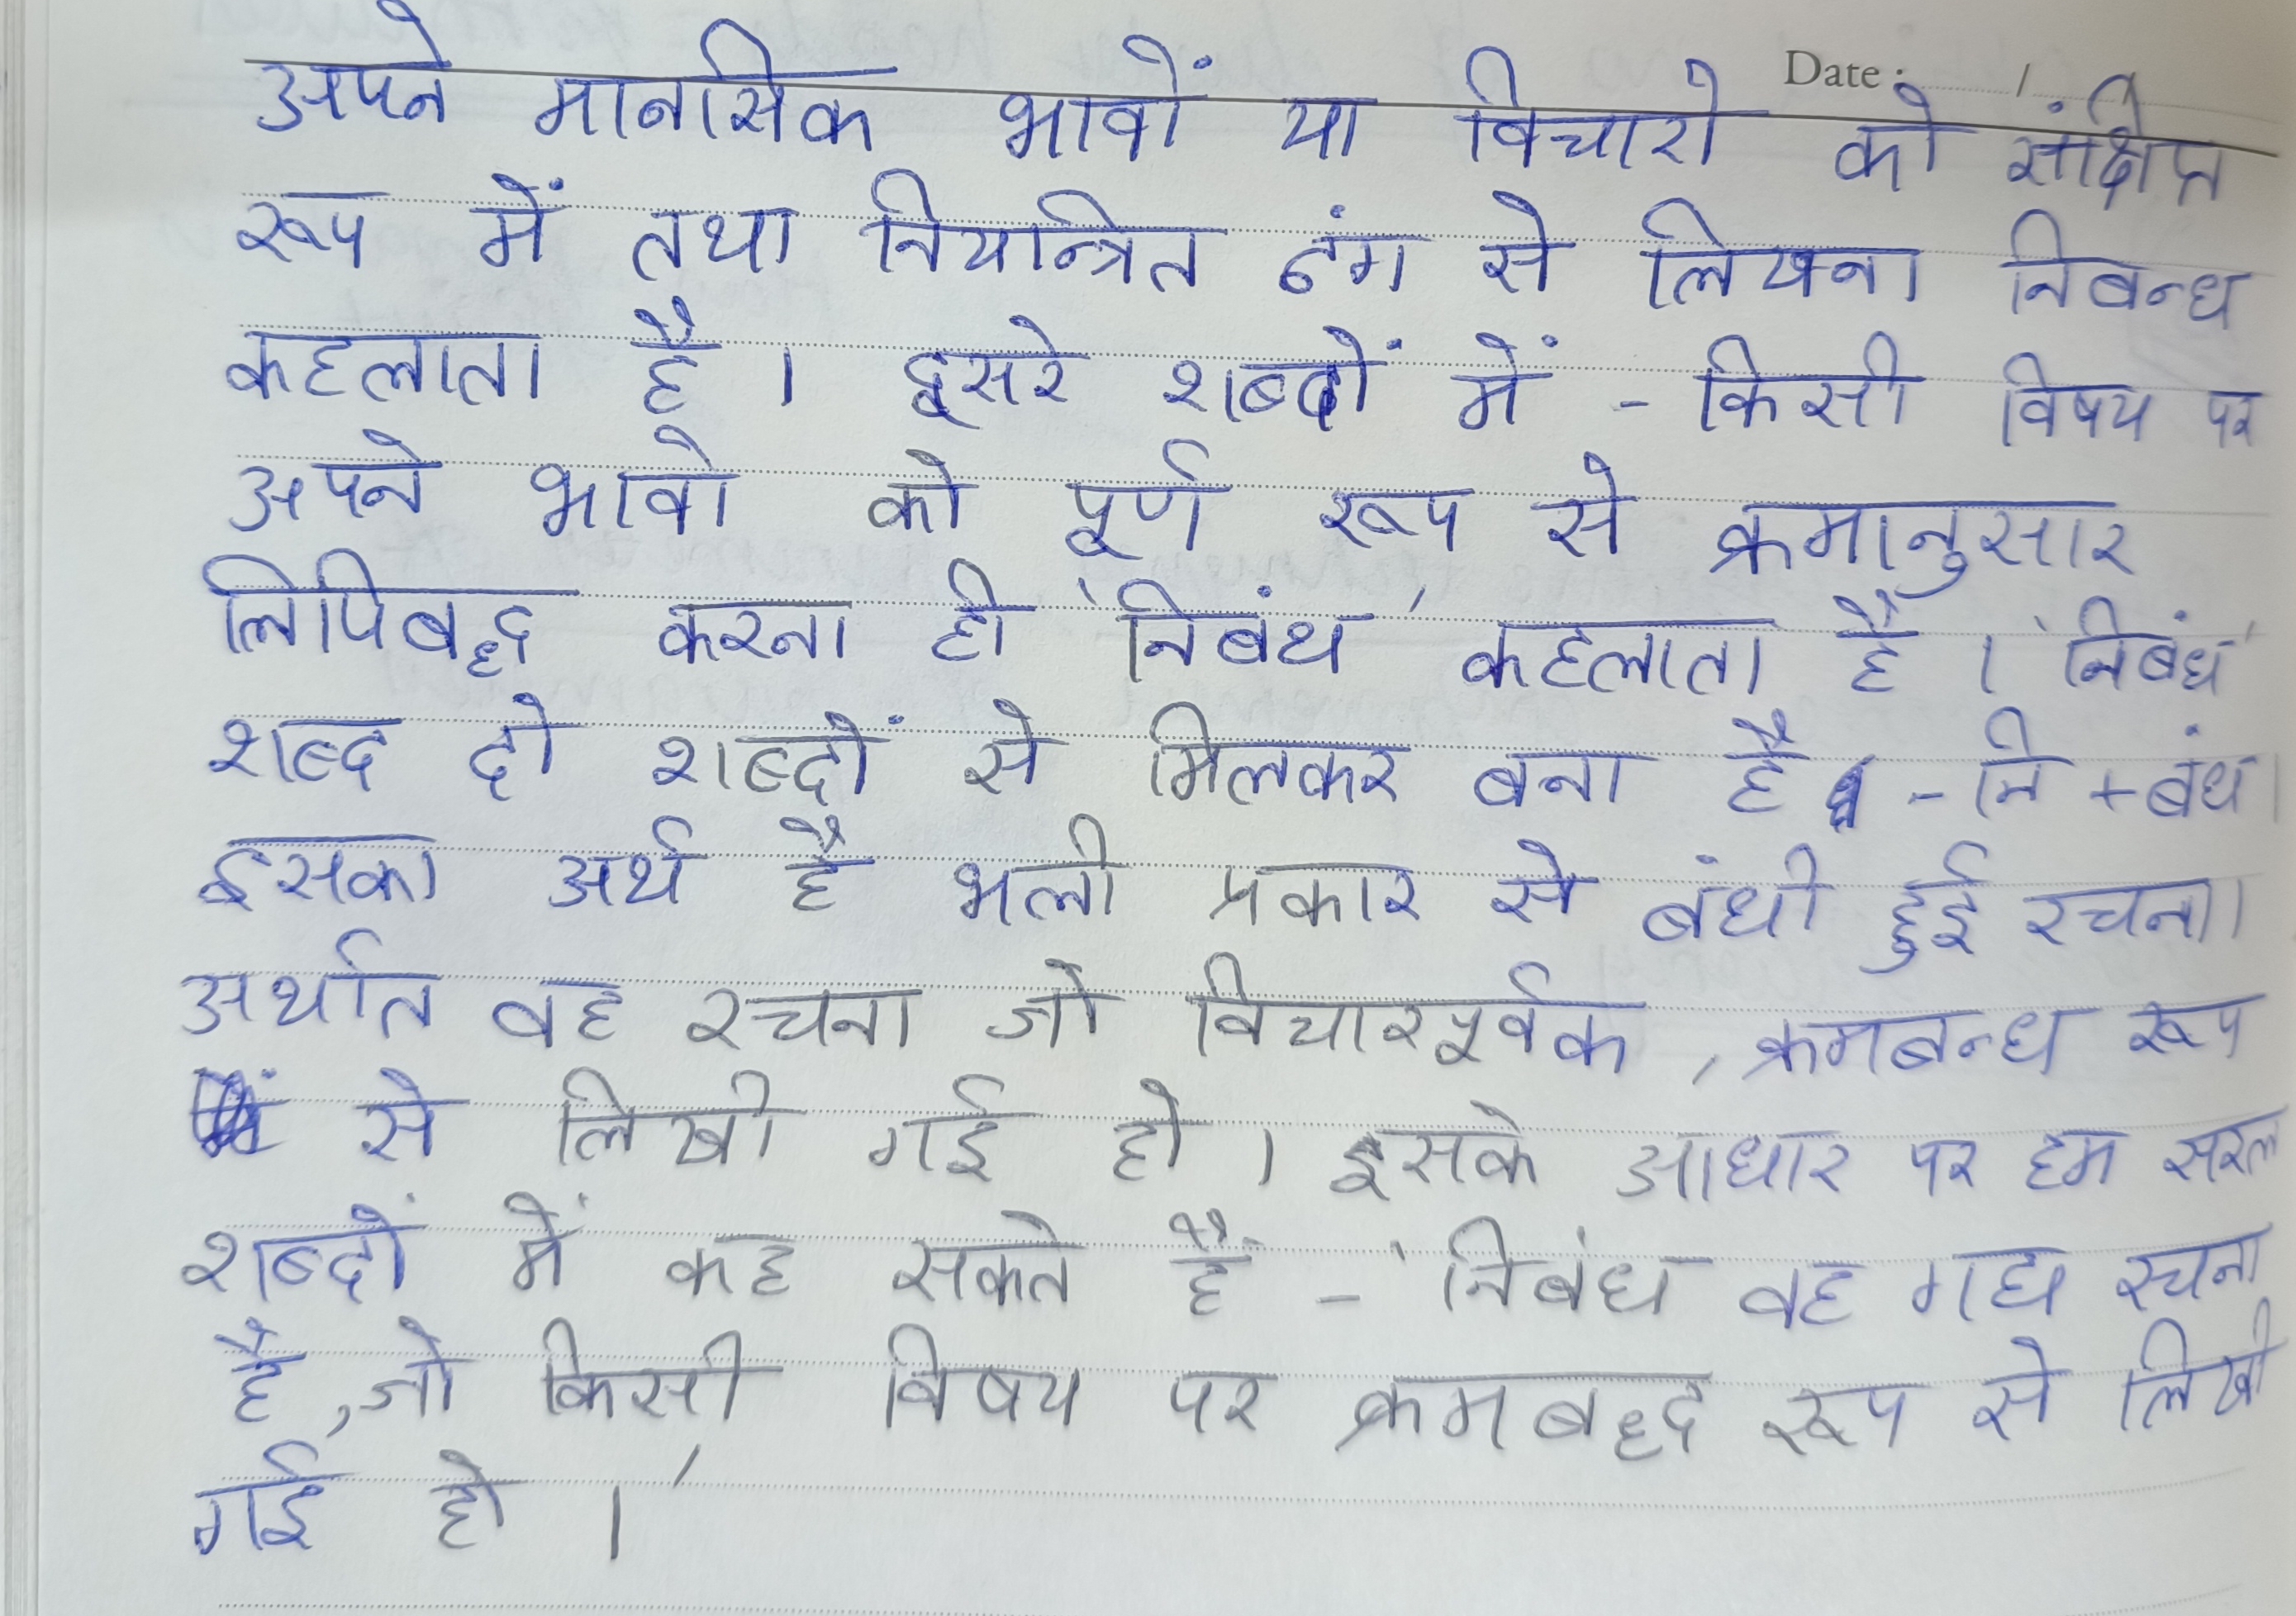 Date : /
अपने मानसिक भावों या विचारो को संक्षिप्त
रूप में तथा नियन्त्रित ढंग से लिखना निबन्ध
कहलाता है । दूसरे शब्दों में - किसी विषय पर
अपने भावो को पूर्ण रूप से क्रमानुसार
लिपिबद्ध करना ही 'निबंध' कहलाता है । 'निबंध'
शब्द दो शब्दों से मिलकर बना है - नि + बंध।
इसका अर्थ है भली प्रकार से बंधी हुई रचना।
अर्थात वह रचना जो विचारपूर्वक , क्रमबन्ध रूप
से लिखी गई हो । इसके आधार पर हम सरल
शब्दों में कह सकते हैं - 'निबंध वह गद्य रचना
है , जो किसी विषय पर क्रमबद्ध रूप से लिखी
गई हो ।'